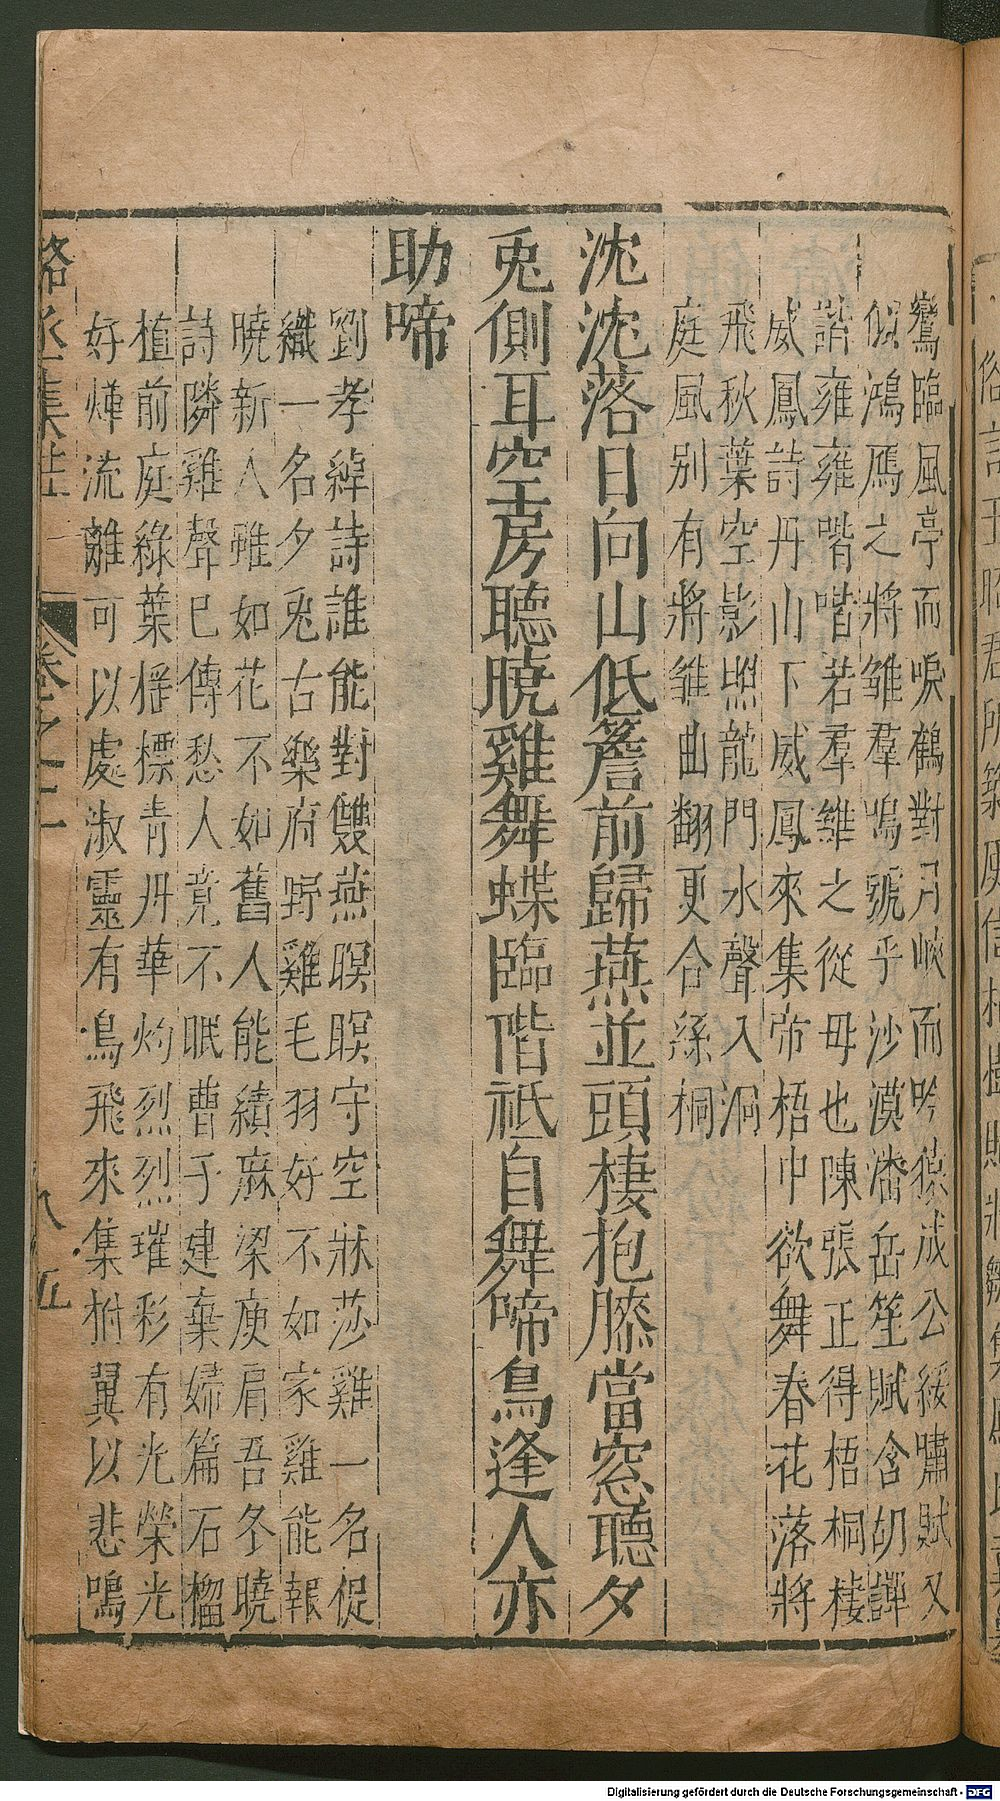 鸞臨風亭而唳鶴對月峽而吟猿成公綏嘯賦又
似鴻鴈之將雛羣鳴號乎沙漠潘岳笙賦含㗅嘽
諧雍雍喈喈若羣雛之從母也陳張正得梧桐棲
威鳳詩丹山下威鳳來集帝梧中欲舞春花落將
飛秋葉空影照龍門水聲入洞
庭風别有將雛曲翻更合絲桐
沈沈落日向山低簷前歸燕並頭棲抱膝當窓聽夕
兎側耳空房聽曉雞舞蝶臨階祗自舞啼鳥逢人亦
助啼
劉孝綽詩誰能對雙燕暝暝守空牀莎雞一名促
織一名夕兎古樂府野雞毛羽好不如家雞能報
曉新人雖如花不如舊人能績麻梁庾肩吾冬曉
詩隣雞聲已傳愁人竟不眠曹子建棄婦篇石榴
植前庭綠葉揺標青丹華灼烈烈璀彩有光榮光
好燁流離可以處淑靈有鳥飛來集拊翼以悲鳴
駱丞集註 卷之二 八五
Digitalisierung gefördert durch die Deutsche Forschungsgemeinschaft - DFG